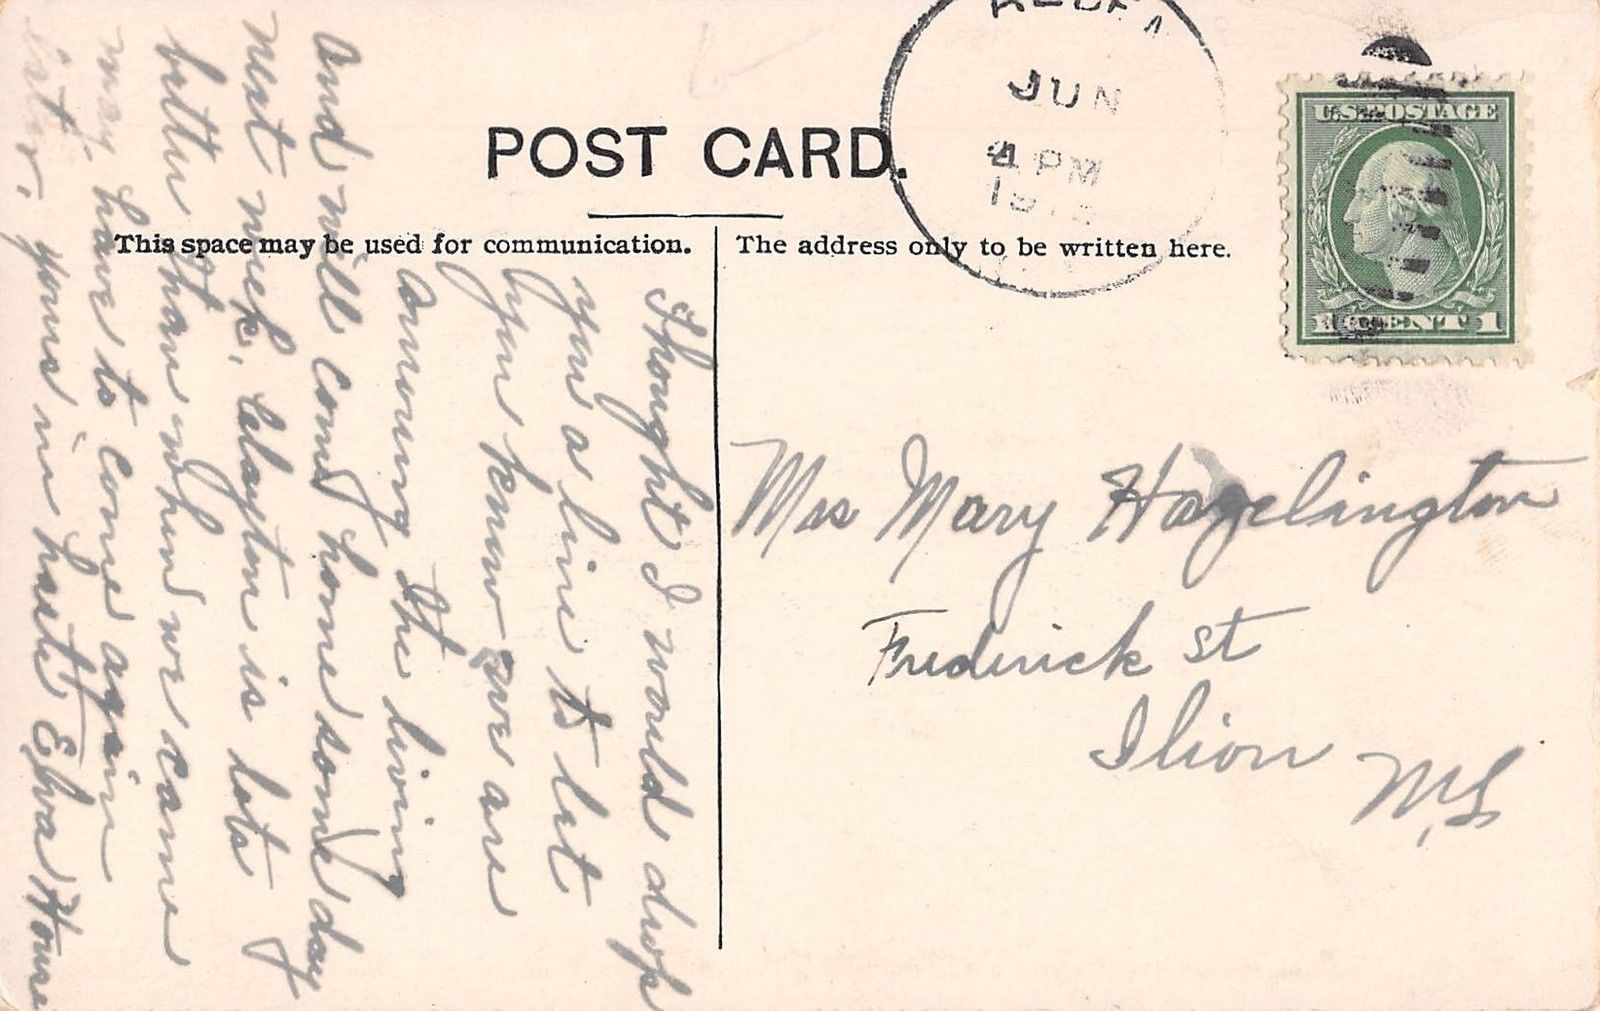 POST CARD.
This space may be used for communication.
The address only to be written here.
JUN
4 PM
U.S. POSTAGE
1 CENT 1
Thought I would drop
you a line to let
you know we are
among the living
and will come home some day
next week. Clayton is lots
better than when we came
may have to come again
yours in haste Elva House
Mrs Mary Hazelington
Frederick St
Ilion
N.Y.